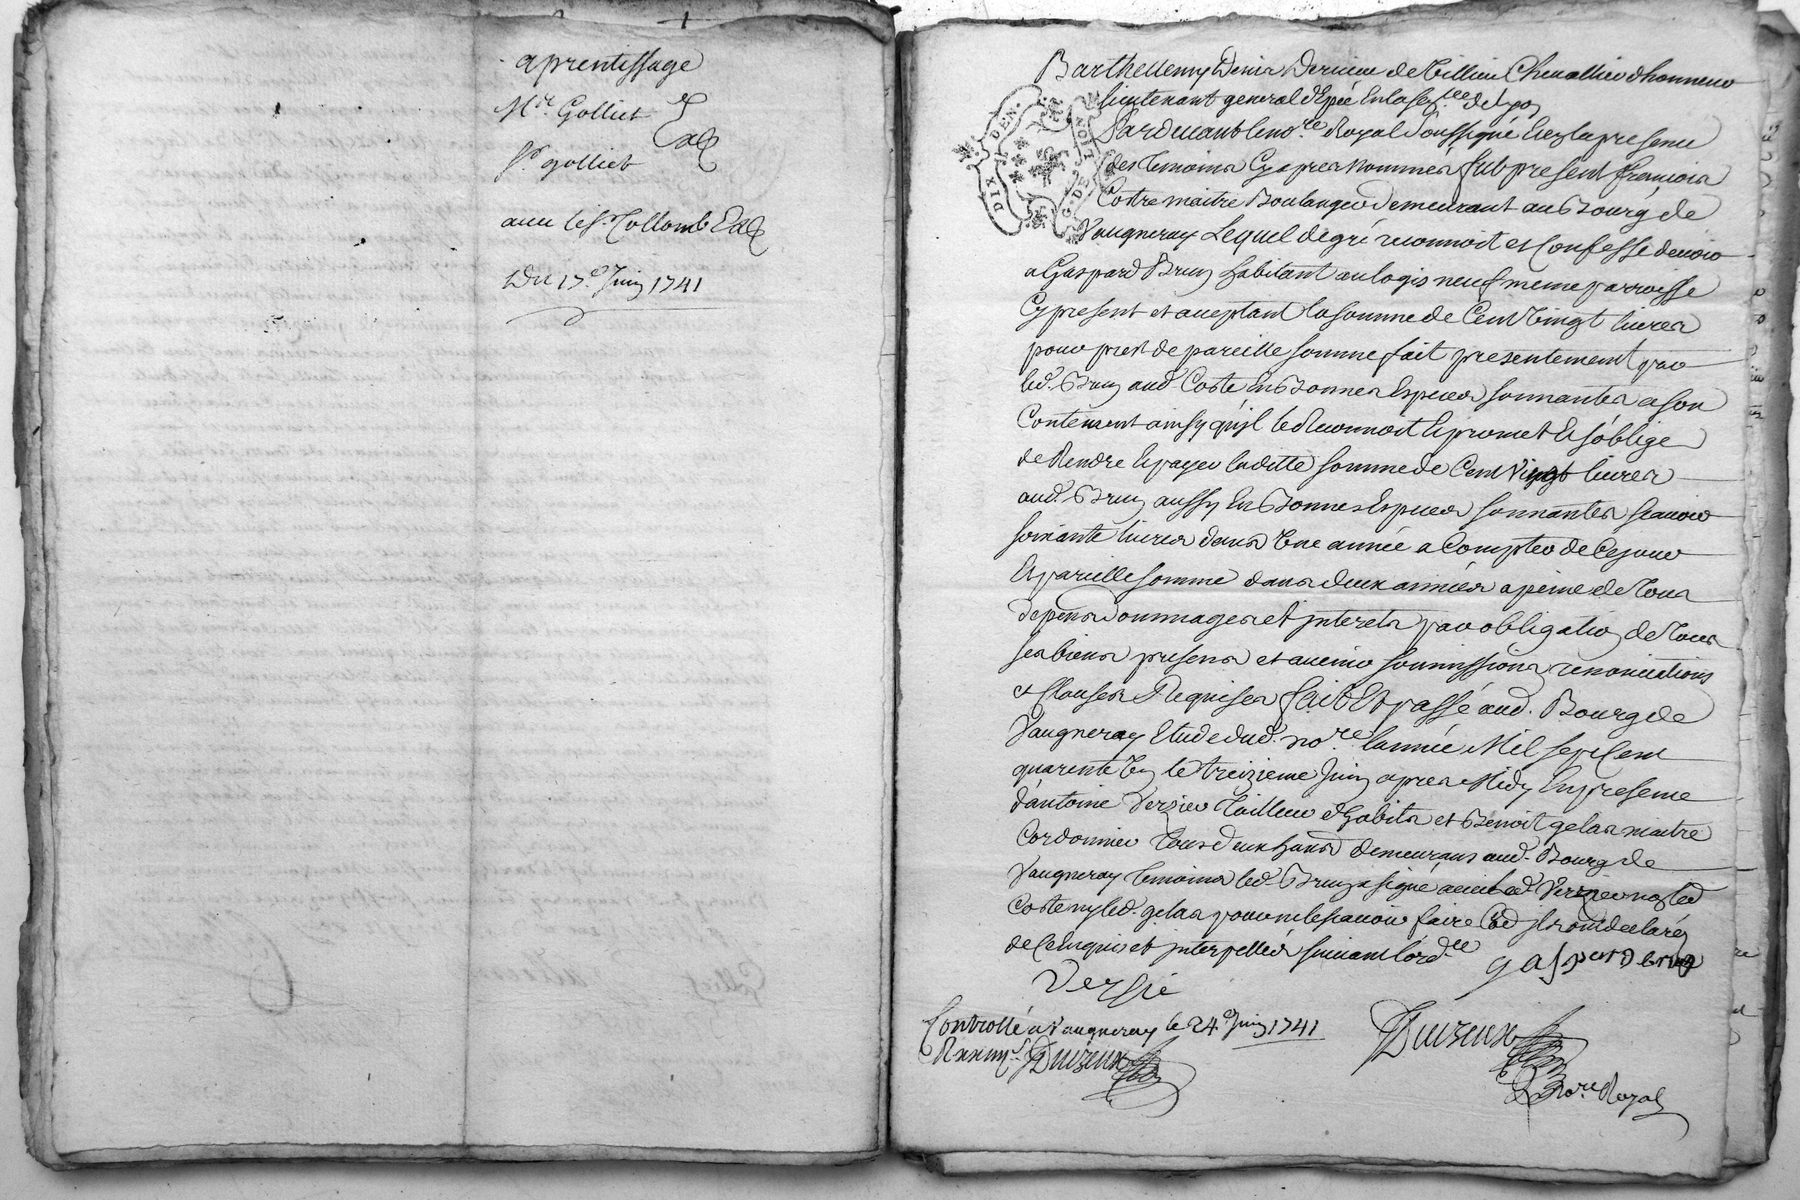 aprentissage
Mre. Golliet
Sr. golliet
avec le Sr. Collomb
Du 17e. Juin 1741
Barthellemy Denis Dervieu de Villieu Chevallier dhonneur
lieutenant general d'Epée En la sen.cée de Lyon
Pardevant le no.re Royal soussigné Et En la presence
des temoins Cy apres nommés fut present françois
Coste maitre Boulanger demeurant au Bourg de
Vaugneray Lequel de gré reconnoit et Confesse devoir
a Gaspard Brun habitant au logis neuf meme parroisse
Cy present et acceptant la somme de Cent Vingt livres
pour prest de pareille somme fait presentement par
led. Brun aud. Coste En Bonnes Especes sonnantes a son
Contentement ainsy qu'jl le Reconnoit Et promet Et s'oblige
de Rendre Et payer laditte somme de Cent Vingt livres
aud. Brun aussy En Bonnes Especes sonnantes scavoir
soixante livres dans Une année a Compter de Ce jour
Et pareille somme dans deux années a peine de Tous
depens dommages et jnterets par obligation de Tous
ses biens presens et avenir soumissions renonciations
et Clauses Requises fait Et passé aud. Bourg de
Vaugneray Etude dud. no.re l'année Mil sept Cent
quarente Un le treizieme Juin apres Midy En presence
d'antoine Verzier Tailleur d'habits et Benoit gelas maitre
Cordonnier Tous deux demeurans aud. Bourg de
Vaugneray temoins led. Brun a signé avec led. Verzier non led.
Coste ny led. gelas pour ne le scavoir faire jls ont declaré
de Ce Enquis et jnterpellés suivant l'ord.ce
gaspard brun
Versie
Controllé a Vaugneray le 24e. Juin 1741
DIX DEN.
G. DE LION
no.re Royal